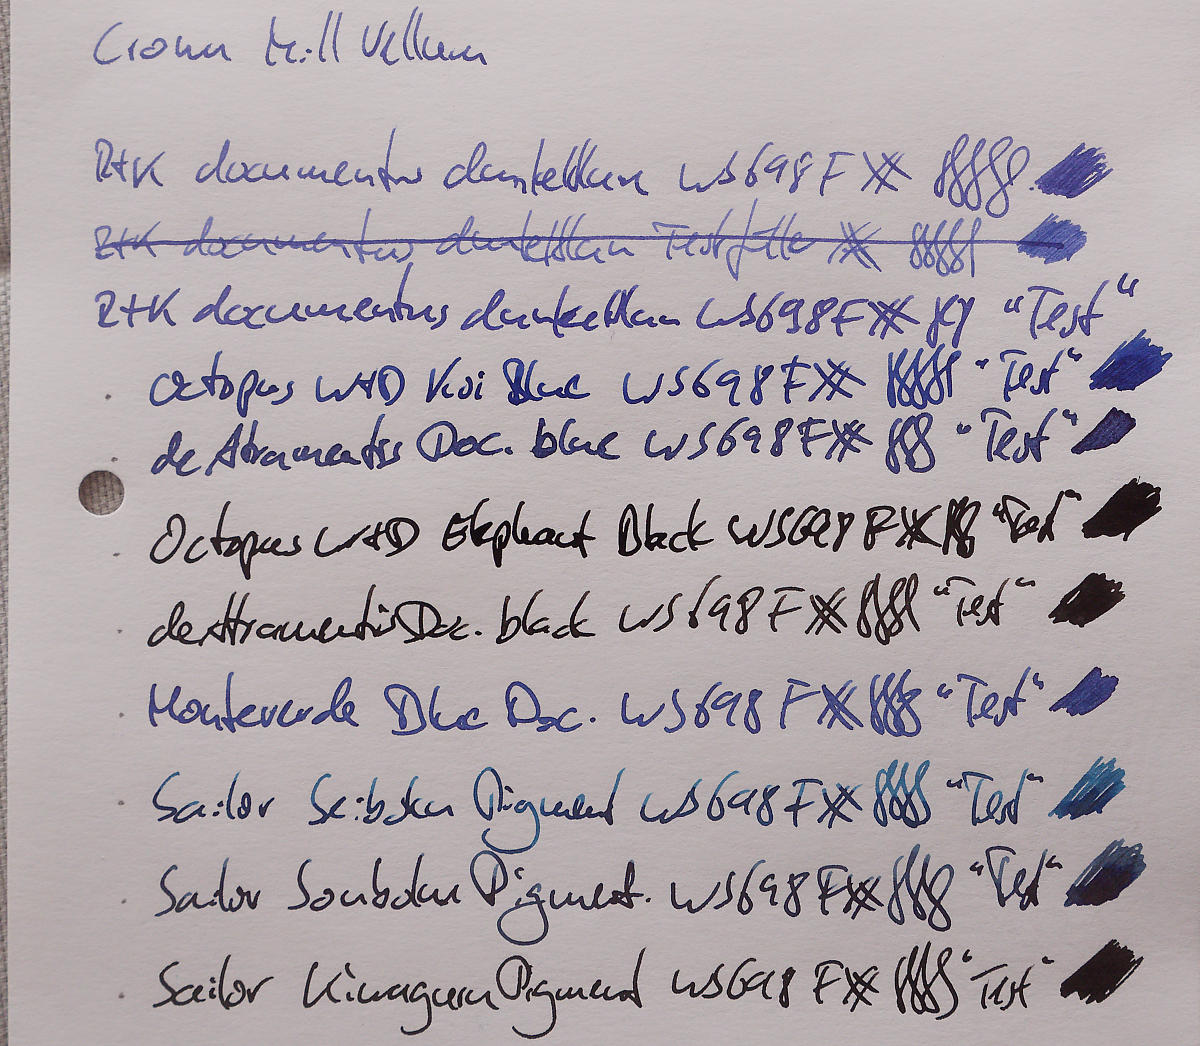 Crown Mill Vellum
R+K documentus dunkelblau WS698F
R+K documentus dunkelblau Testfüller
R+K documentus dunkelblau WS698F "Test"
Octopus W+D Koi Blue WS698F "Test"
de Atramentis Doc. blue WS698F "Test"
Octopus W+D Elephant Black WS698F "Test"
de Atramentis Doc. black WS698F "Test"
Monteverde Blue Doc. WS698F "Test"
Sailor Seiboku Pigment WS698F "Test"
Sailor Souboku Pigment. WS698F "Test"
Sailor Kiwaguro Pigment WS698F "Test"